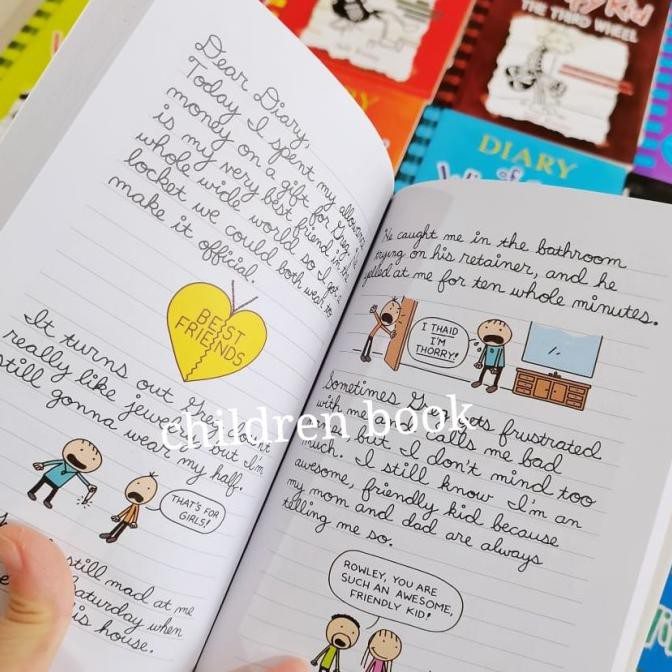 THE THIRD WHEEL
DIARY
Dear Diary,
Today I spent my allowance
money on a gift for Greg. He
is my very best friend in the
whole wide world so I got a
locket we could both wear to
make it official.
BEST
FRIENDS
It turns out Greg
really like jewelry but I'm
still gonna wear my half.
THAT'S FOR
GIRLS!
still mad at me
Saturday when
his house.
He caught me in the bathroom
trying on his retainer, and he
yelled at me for ten whole minutes.
I THAID
I'M
THORRY!
Sometimes Greg gets frustrated
with me and calls me bad
but I don't mind too
much. I still know I'm an
awesome, friendly kid because
my mom and dad are always
telling me so.
ROWLEY, YOU ARE
SUCH AN AWESOME,
FRIENDLY KID!
children book